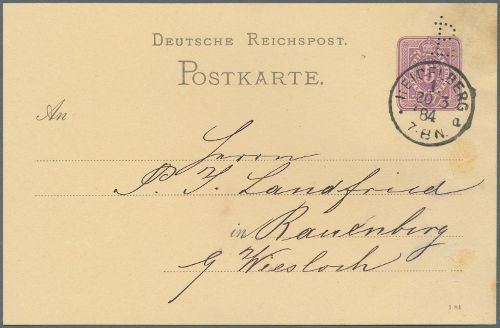 DEUTSCHE REICHSPOST.
POSTKARTE.
HEIDELBERG
20/3
84
7-8N.
An
Herrn
P. J. Landfried
in Rauenberg
Wiesloch